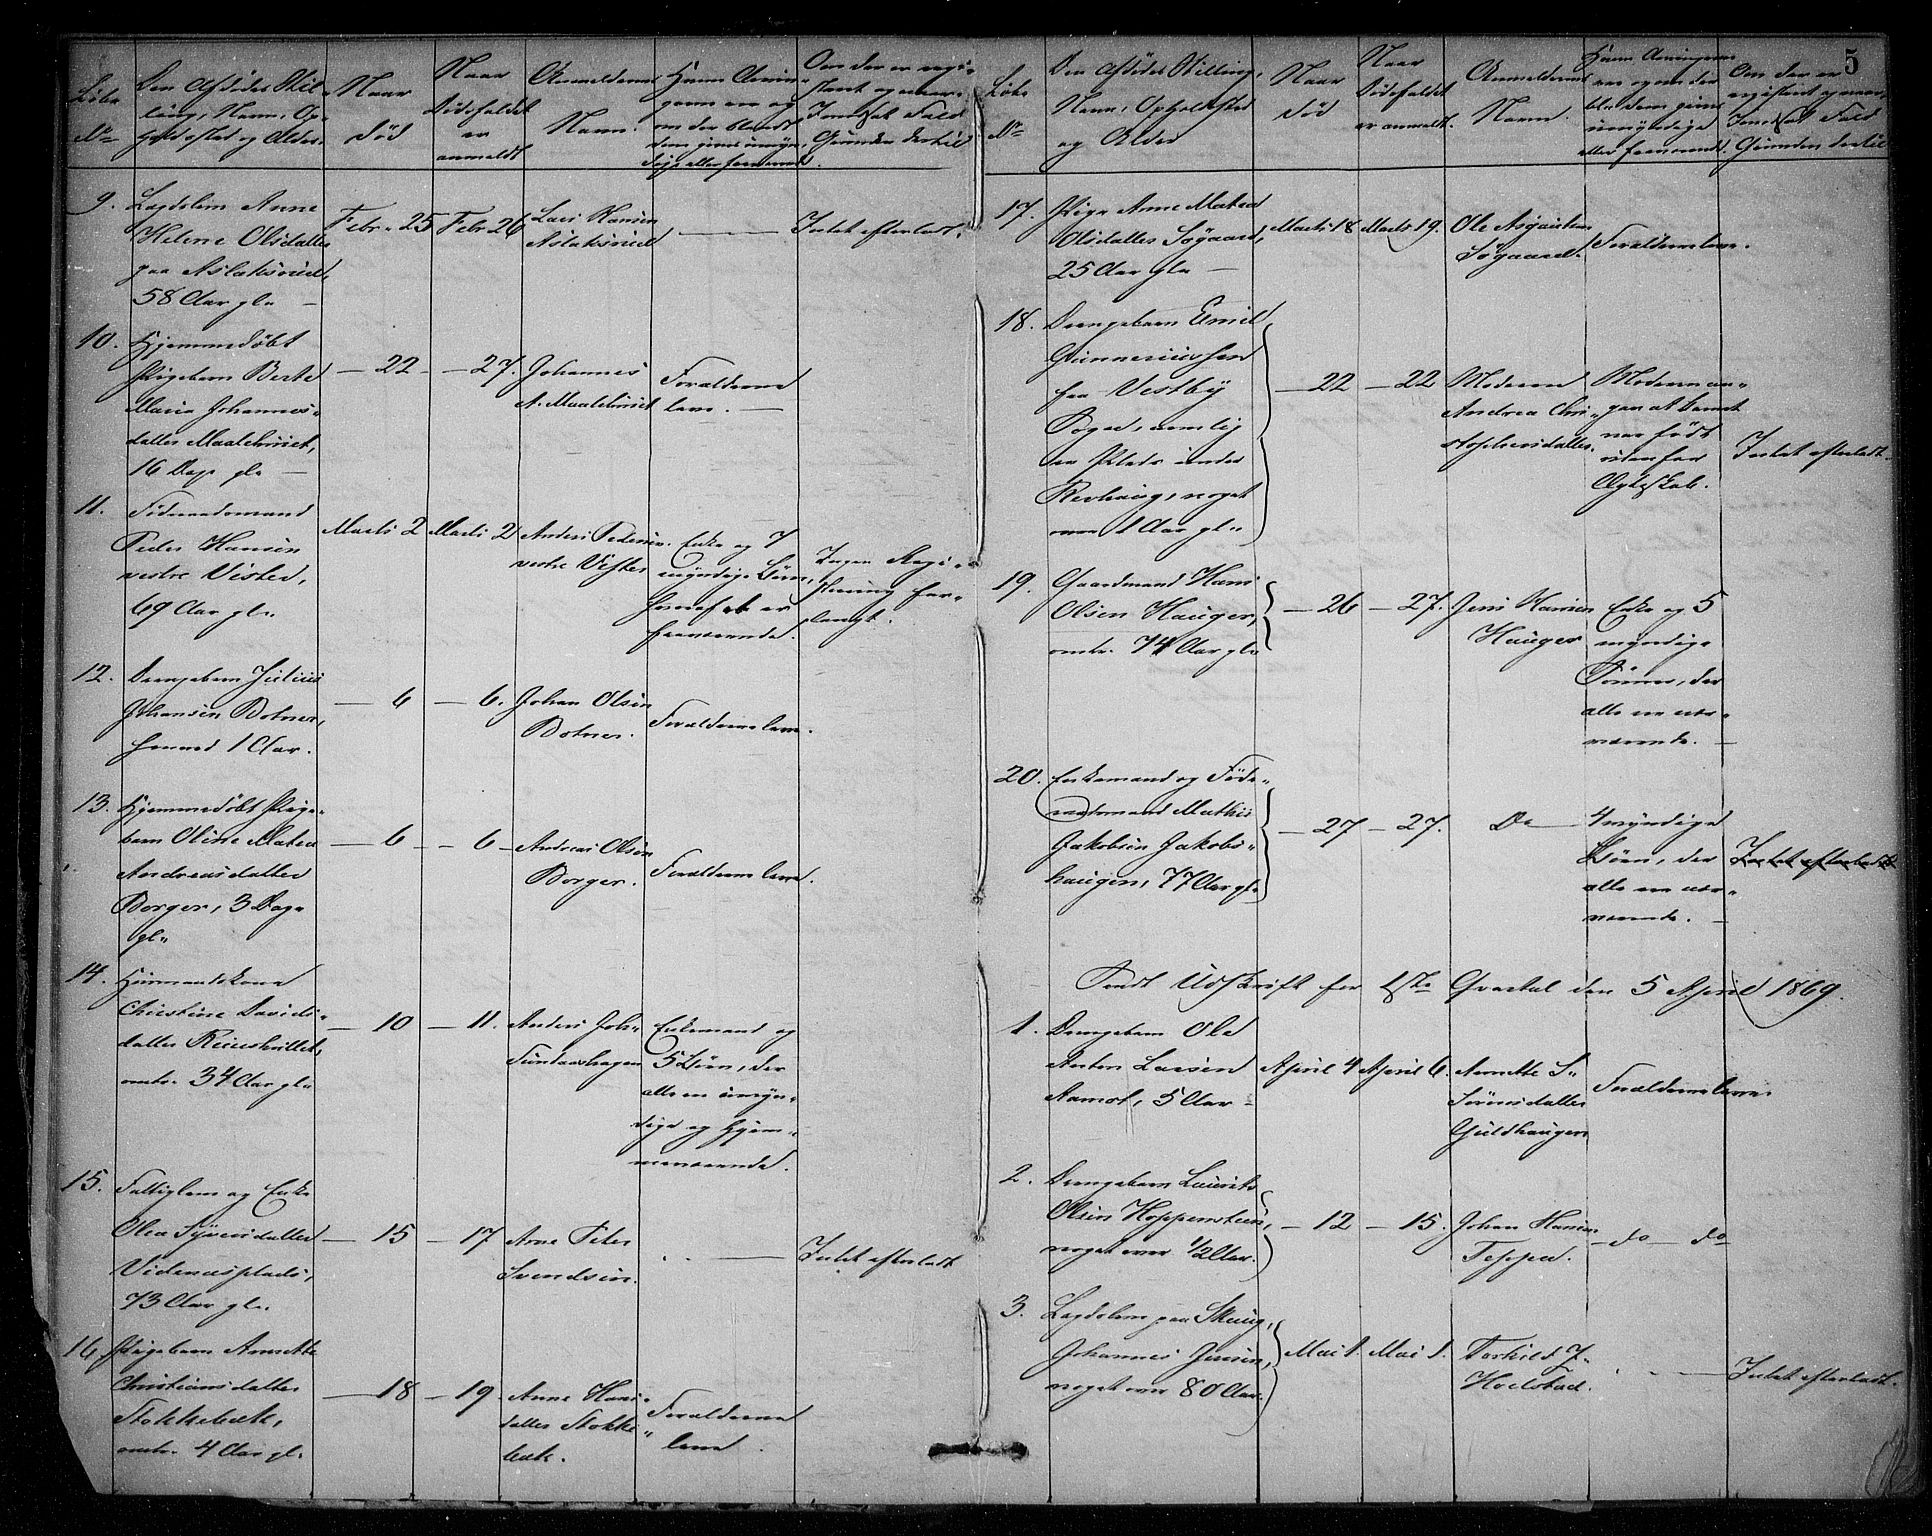 5
Løbe
No
Den Afdødes Stil-
ling, Navn, Op-
holdssted og Alder.
Naar
død
Naar
Dødsfaldet
er
anmeldt
Anmelderens
Navn.
Hvem Arvin-
gerne ere og
om der blandt
dem gives umyn-
dige eller fraværende
Om der er regi-
streret og i mod-
sat Fald
Grunden dertil
9. Lægdslem Anne
Helene Olsdatter
paa Aslaksrud,
58 Aar gl. —
Febr. 25
Febr. 26
Lars Hansen
Aslaksrud
—
Intet efterladt.
10. Hjemmedøbt
Pigebarn Berte
Maria Johannes-
datter Maalehuset,
16 Dage gl. —
— 22
— 27.
Johannes
A. Maalehuset
Forældrene
leve. —
11. Føderaadsmand
Peder Hansen
vestre Vister,
69 Aar gl.
Marts 2
Marts 2
Anders Pedersen
vestre Vister
Enke og 7
myndige Børn,
hvoraf et er
fraværende.
Ingen Regi-
strering for-
langt.
12. Drengebarn Julius
Johansen Botner,
henved 1 Aar.
— 6
— 6.
Johan Olsen
Botner.
Forældrene leve.
13. Hjemmedøbt Pige-
barn Oline Mathea
Andreasdatter
Borger, 3 Dage
gl.
— 6
— 6
Andreas Olsen
Borger.
Forældrene leve.
14. Huusmandskone
Christine Davids-
datter
omtr. 34 Aar gl.
— 10
— 11.
Anders Joh.
Sundaashagen
Enkemand og
5 Børn, der
alle ere umyn-
dige og hjem-
meværende.
15. Fattiglem og Enke
Olea Syversdatter
Videnæsplads,
73 Aar gl.
— 15
— 17
Arne Peter
Svendsen.
—
Intet efterladt
16. Pigebarn Annette
Christiansdatter
Stokkebæk,
omtr. 4 Aar gl.
— 18
— 19
Anne Hans-
datter Stokke-
bæk.
Forældrene
leve.
Løbe
No
Den Afdødes Stilling,
Navn, Opholdssted
og Alder
Naar
død
Naar
Dødsfaldet
er anmeldt.
Anmelderens
Navn.
Hvem Arvingerne
ere og om der
blandt dem gives
umyndige
eller fraværende.
Om der er
registreret og i mod-
sat Fald
Grunden dertil
17. Pige Anne Mathea
Olsdatter Søgaard,
25 Aar gl. —
Marts 18
Marts 19.
Ole Asgautsen
Søgaard.
Forældrene leve.
18. Drengebarn Emil
Gunneriussen
fra Vestby
Sogn, nemlig
en Plads under
Revhaug, noget
over 1 Aar gl.
— 22
— 22
Moderen
Andrea Chri-
stophersdatter.
Moderen an-
gav at barnet
var født
udenfor
Ægteskab.
Intet efterladt.
19. Gaardmand Hans
Olsen Hauger,
omtr. 74 Aar gl.
— 26
— 27.
Jens Hansen
Hauger
Enke og 5
myndige
Sønner, der
alle ere nær-
værende. —
20. Enkemand og Føde-
raadsmand Mathis
Jakobsen Jakobs-
haugen, 77 Aar gl.
— 27
— 27.
Do —
4 myndige
Børn, der
alle ere nær-
værende. —
Intet efterladt
Sendt Udskrift for 1ste Qvartal den 5 April 1869.
1. Drengebarn Ole
Anton Larsen
Aamot, 5 Aar —
April 4
April 6.
Annette S.
Sørensdatter
Guldhaugen
Forældrene leve.
2. Drengebarn Laurits
Olsen Hoppensteen,
noget over 1/2 Aar.
— 12
— 15.
Johan Hansen
Teppen.
— do — do
3. Lægdslem paa Skaug,
Johannes Jensen,
noget over 80 Aar.
Mai 1.
Mai 1.
Torkild J.
Hvelstad.
—
Intet efterladt.